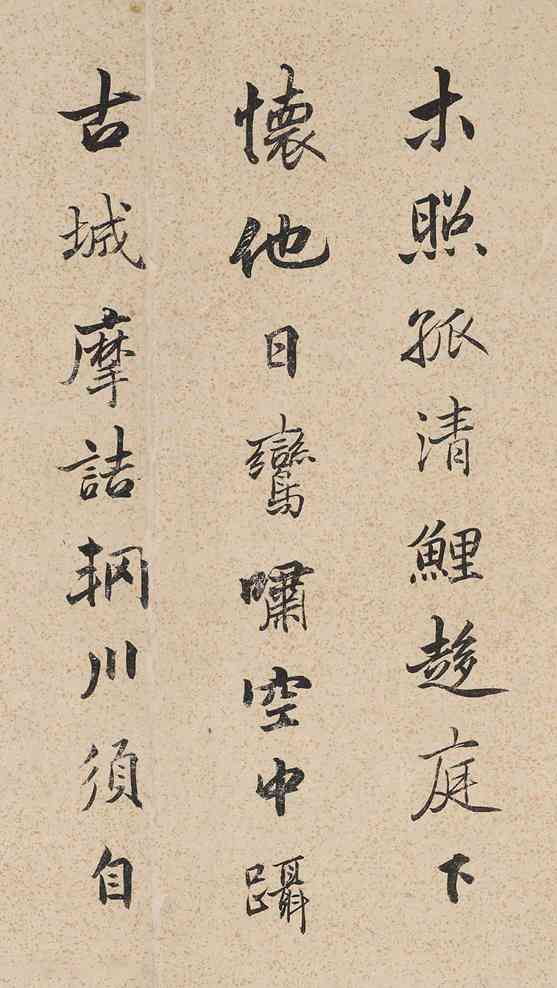 木照孤清鯉趍庭下
懷他日鸞嘯空中躡
古城摩詰輞川須自